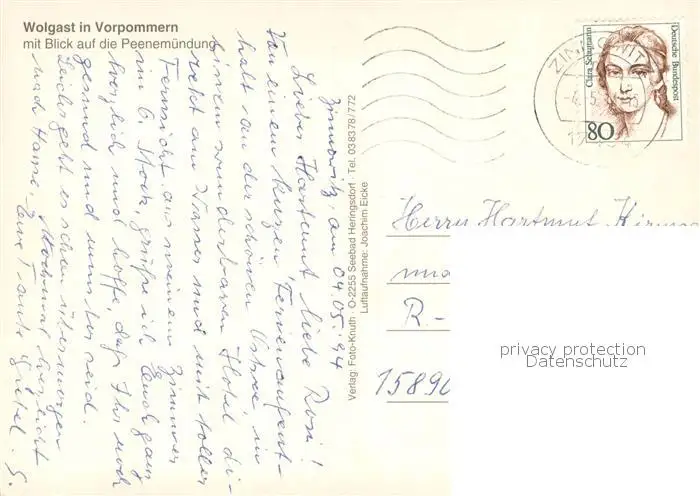 Wolgast in Vorpommern
mit Blick auf die Peenemündung
Zinnowitz, am 04.05.94
Lieber Hartmut, liebe Rosi!
Von einem kurzen Ferienaufent-
halt an der schönen Ostsee in
einem wunderbaren Hotel di-
rekt am Wasser und mit toller
Fernsicht aus meinem Zimmer
im 6. Stock, grüße ich Euch ganz
herzlich und hoffe, daß Ihr noch
gesund und munter seid.
Leider geht es schon übermorgen
nach Hause. Nochmal herzlichst
Eure Tante Gretel. S.
Verlag: Foto-Knuth · O-2255 Seebad Heringsdorf · Tel. 038378/772
Luftaufnahme: Joachim Eicke
Clara Schumann
Deutsche Bundespost
80
ZINNOWITZ
Herrn Hartmut
und
R-
15890
privacy protection
Datenschutz